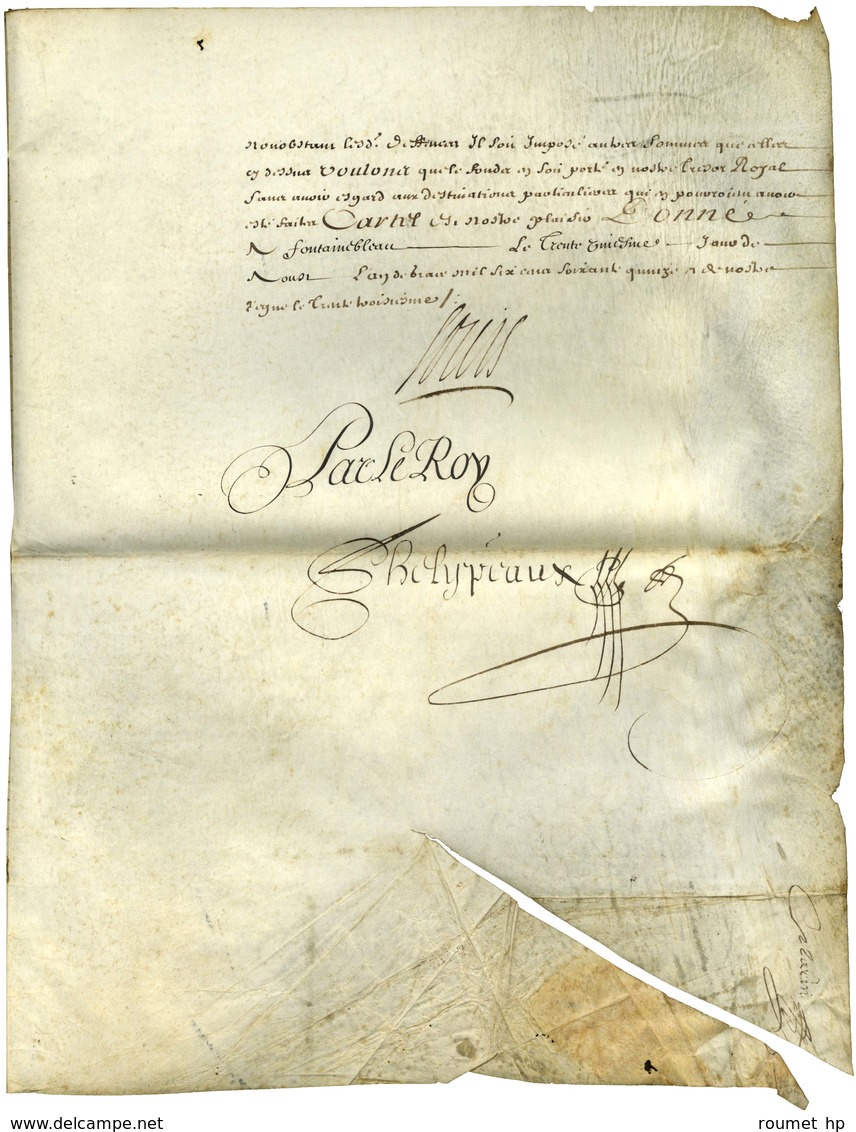 nonobstant lesd. deffences Il soit Imposé autres sommes que celles
cy dessus voulons que le fondz en soit porté en nostre tresor Royal
sans avoir esgard aux destinations particulieres qui en pourroient avoir
esté faites Car tel est nostre plaisir Donné
A fontainebleau Le trente uniesme Jour de
Aoust L'an de grace mil six cens soixante quinze et de nostre
regne le trente troisiesme /.
Louis
Par Le Roy
Phelypeaux
www.delcampe.net
roumet hp